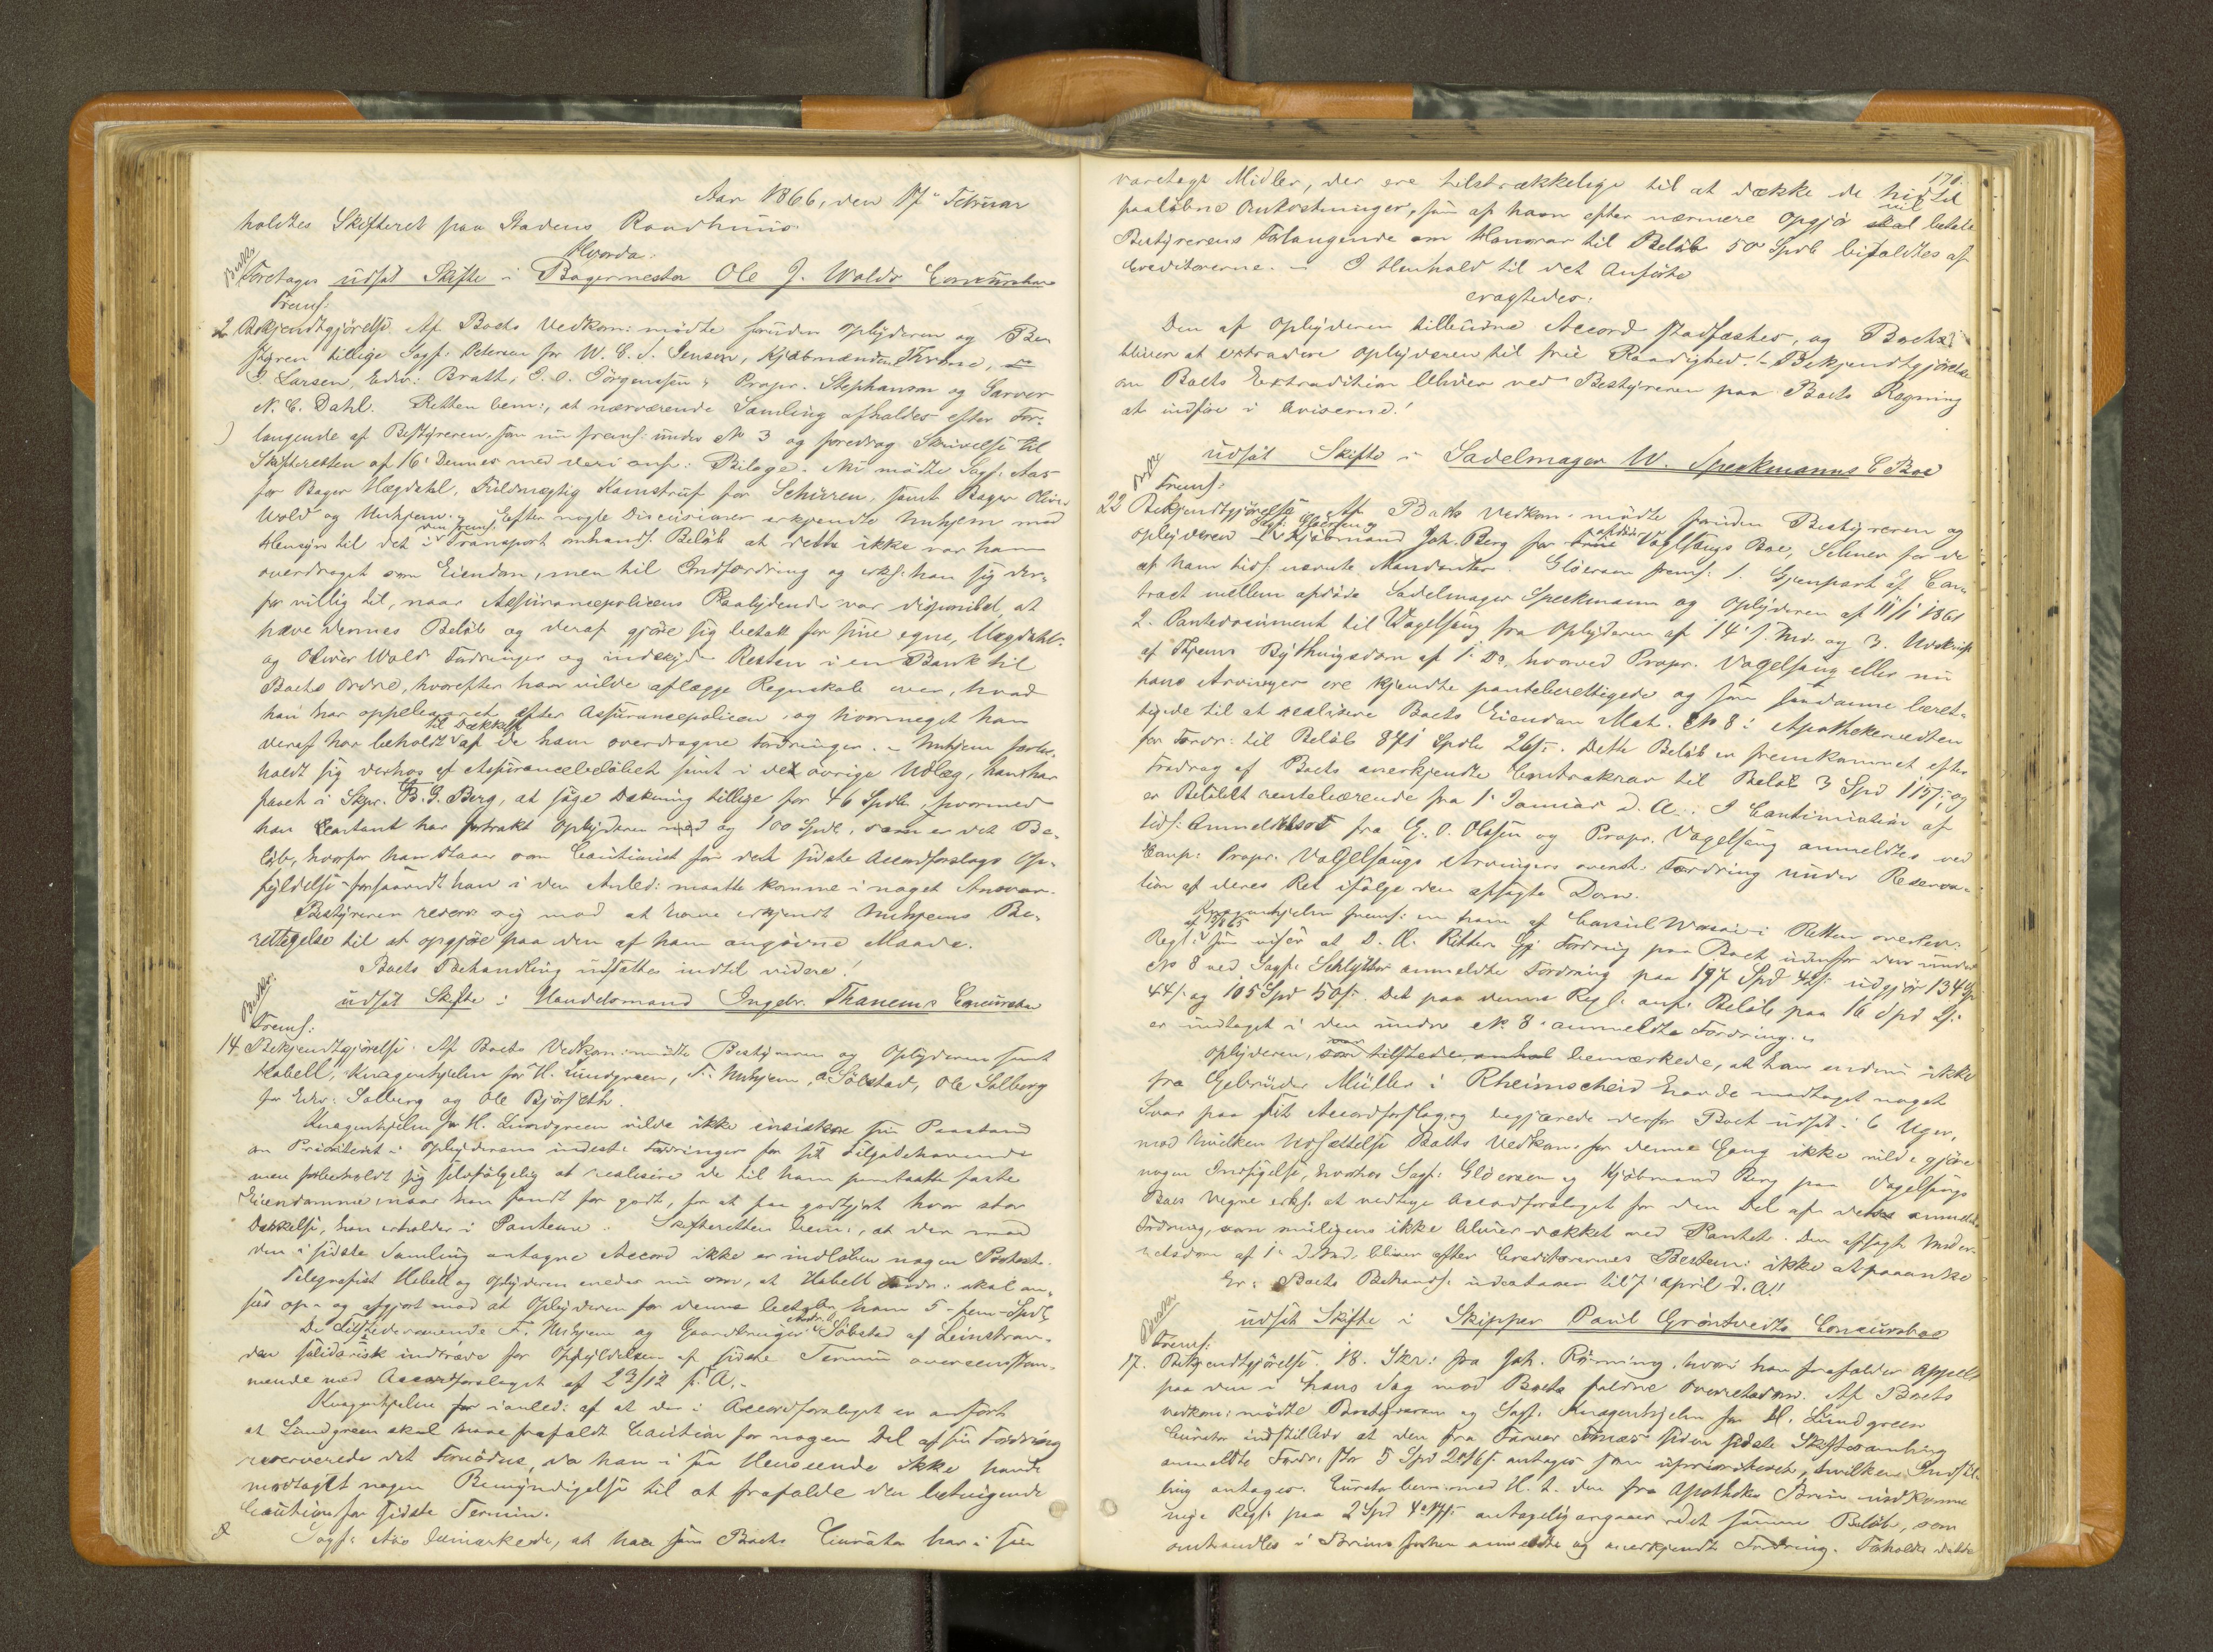 Aar 1866, den 17de Februar
holdtes Skifteret paa Stadens Raadhuus
Hvorda:
Foretages udsat Skifte i Bagermester Ole J. Wolds Concursboe
Frems:
2 Bekjendtgjørelse. Af Boets Vedkom: mødte foruden Oplyderen og Be-
styreren tillige Sagf. Petersen for W. C. S. Jensen, Kjøbmændene
J. Larsen, Edv: Bratt, J. O. Jørgensen, Propr. Stephanson og Garver
N. C. Dahl. Retten bem:, at nærværende Samling afholdes efter For-
langende af Bestyreren, som nu frems: under No 3 og foredrog Skrivelse til
Skifteretten af 16' Dennes med deri anf: Bilage. Nu mødte Sagf. Aas
for Bager Hægdahl, Fuldmægtig Kamstrup for Schüren, samt Bager Oliver
Wold og Huhjem. Efter nogle Discussioner erkjendte Huhjem med
Hensyn til det i den frems: Transport omhandl. Beløb at dette ikke var ham
overdraget som Eiendom, men til Indfordring og erkl. han sig der-
for villig til, naar Assurancepolicens Paalydende var disponibel, at
hæve dennes Beløb og deraf gjøre sig betalt for sine egne, Hægdahls
og Oliver Wold Fordringer og indskyde Resten i en Bank til
Boets Ordre, hvorefter han vilde aflægge Regnskab over, hvad
han har oppebaaret efter Assurancepolicen, og hvormeget han
deraf har beholdt til Dækkelse af de ham overdragne Fordringer. - Huhjem forbe-
holdt sig derhos af Assurancebeløbet samt i det øvrige Udlæg, han har
faaet i Skpr. B. G. Berg, at søge Dækning tillige for 46 Spdlr, hvormed
han contant har forstrakt Oplyderen med og 100 Spdl, som er det Be-
løb, hvorfor han staar som Cautionist for det sidste Accordforslags Op-
fyldelse forsaavidt han i den Anled: maatte komme i noget Ansvar.
Bestyreren reserv: sig mod at have erkjendt Huhjems Be-
rettigelse til at opgjøre paa den af ham angivne Maade.
Boets Behandling udsattes indtil videre!
udsat Skifte i Handelsmand Ingebr. Thanems Concursboe
Frems:
14 Bekjendtgjørelse. Af Boets Vedkom: mødte Bestyreren og Oplyderen samt
Habell, Knagenhjelm for H. Lundgreen, F. Huhjem, A Sølstad, Ole Solberg
for Edv: Solberg og Ole Bjørseth.
Knagenhjelm for H. Lundgreen vilde ikke insistere sin Paastand
om Prioritet i Oplyderens indest: Fordringer for sit Tilgodehavende
men forbeholdt sig selvfølgelig at realisere de til ham pantsatte faste
Eiendomme, naar han fandt for godt, for at faa godtgjort hvor stor
Dækkelse, han erholder i Pantene. Skifteretten bem:, at den med
den i sidste Samling antagne Accord ikke er indløben nogen Protest.
Telegrafist Habell og Oplyderen enedes nu om, at Habell Fordr: skal an-
sees op- og afgjort mod at Oplyderen for denne betaler ham 5 - fem - Spdl
De Tilstedeværende F. Huhjem og Gaardbruger Andr. Søbstad af Leinstran-
den solidarisk indtræde for Opfyldelsen af sidste Termin overensstem-
mende med Accordforslaget af 23/12 f. A.
Knagenhjelm for i anled: af at der i Accordforslaget er anført
at Lundgreen skal have frafaldt Caution for nogen Del af sin Fordring
reserverede det Fornødne, da han i saa Henseende ikke havde
modtaget nogen Bemyndigelse til at frafalde den betingende
Caution for sidste Termin.
Sagf: Aas bemærkede, at han som Boets Curator har i sin
170.
varetægt Midler, der ere tilstrækkelige til at dække de hidtil
paaløbne Omkostninger, som af ham efter nærmere Opgjør skal vil betale
Bestyrerens Forlangende om Honorar til Beløb 50 Spdl bifaldtes af
Creditorerne. - I Henhold til det Anførte
eragtedes:
Den af Oplyderen tilbudne Accord stadfæstes, og Boets
bliver at extradere Oplyderen til frie Raadighed! - Bekjendtgjørelse
om Boets Extradition bliver ved Bestyreren paa Boets Regning
at indføre i Aviserne!
udsat Skifte i Sadelmager W. Speekmanns C Boe
Frems:
22 Bekjendtgjørelse Af Boets Vedkom. mødte foruden Bestyreren og
Oplyderen Sagf: Gløersen og Kjøbmand Joh. Berg for afdøde Vogelsangs Boe, Selmer for de
af ham tidl. nævnte Mandanter. Gløersen frems: 1. Gjenpart af Con-
tract mellem afdøde Sadelmager Speekmann og Oplyderen af 11/1 1861
2. Pantedocument til Vogelsang fra Oplyderen af 14' s. Md. og 3. Udskrift
af Thjems Bythingsdom af 1' Ds, hvorved Propr. Vogelsang eller nu
hans Arvinger ere kjendte panteberettigede og som saadanne beret-
tigede til at realisere Boets Eiendom Mat. No 8 i Apothekerveiten
for Fordr: til Beløb 871 Spdlr 26 s. Dette Beløb er fremkommet efter
Fradrag af Boets anerkjendte Contrakrav til Beløb 3 Spd 115 s; og
er Beløbet rentebærende fra 1' Januar d. A. I Continuation af
tidl: Anmeldelser fra G. O. Olssen og Propr. Vogelsang anmeldtes ved
Comp: Propr. Vogelsangs Arvingers ovenst: Fordring under Reserva-
tion af deres Ret ifølge den afsagte Dom.
Knagenhjelm frems: en ham af Consul i Retten overlev:
Regl: af som viser at D. A. Ritters Gj: Fordring paa Boet udenfor den under
No 8 ved Sagf: Schlytter anmeldte Fordring paa 197 Spd 42 s udgjør 134 Sp
44 s. og 105 Spd 50 s. Det paa denne Regl. anf. Beløb paa 16 Spd
er indtaget i den under No 8 anmeldte Fordring.
Oplyderen, som var tilstede, bemærkede, at han endnu ikke
fra Gebrüder Müller i Rheimscheid havde modtaget noget
Svar paa sit Accordforslag, og begjærede derfor Boet udsat i 6 Uger,
mod hvilken Udsættelse Boets Vedkom: for denne Gang ikke vilde gjøre
nogen Indsigelse, hvorhos Sagf: Gløersen og Kjøbmand Berg paa Vogelsangs
Boes Vegne erkl. at vedtage Accordforslaget for den Del af dettes anmeldte
Fordring, som muligens ikke bliver dækket ved Pantet. Den afsagte Under-
retsdom af 1' d. Md. bliver efter Creditorernes Bestem: ikke at paaanke
Er: Boets Behandl. udsættes til 7' April d. A!!
udsat Skifte i Skipper Paul Grøntvedts Concursboe
Frems:
17. Bekjendtgjørelse. 18. Skr: fra Joh. Rønning, hvori han frafalder Appell
paa den i hans Sag mod Boets faldne Overretsdom. Af Boets
vedkom: mødte Bestyreren og Sagf. Knagenhjelm for H. Lundgreen
Curator indstillede at den fra siden sidste Skiftesamling
anmeldte Fordr: stor 5 Spd antages som uprioriteret, hvilken Indstil-
ling antages. Curator bem: med H. t. den fra Apotheker Brun indkomne
nye Regl. paa 2 Spd antagelig angaar det samme Beløb, som
omhandles i Bruns forhen anmeldte og anerkjendte Fordring. Forholdes dette